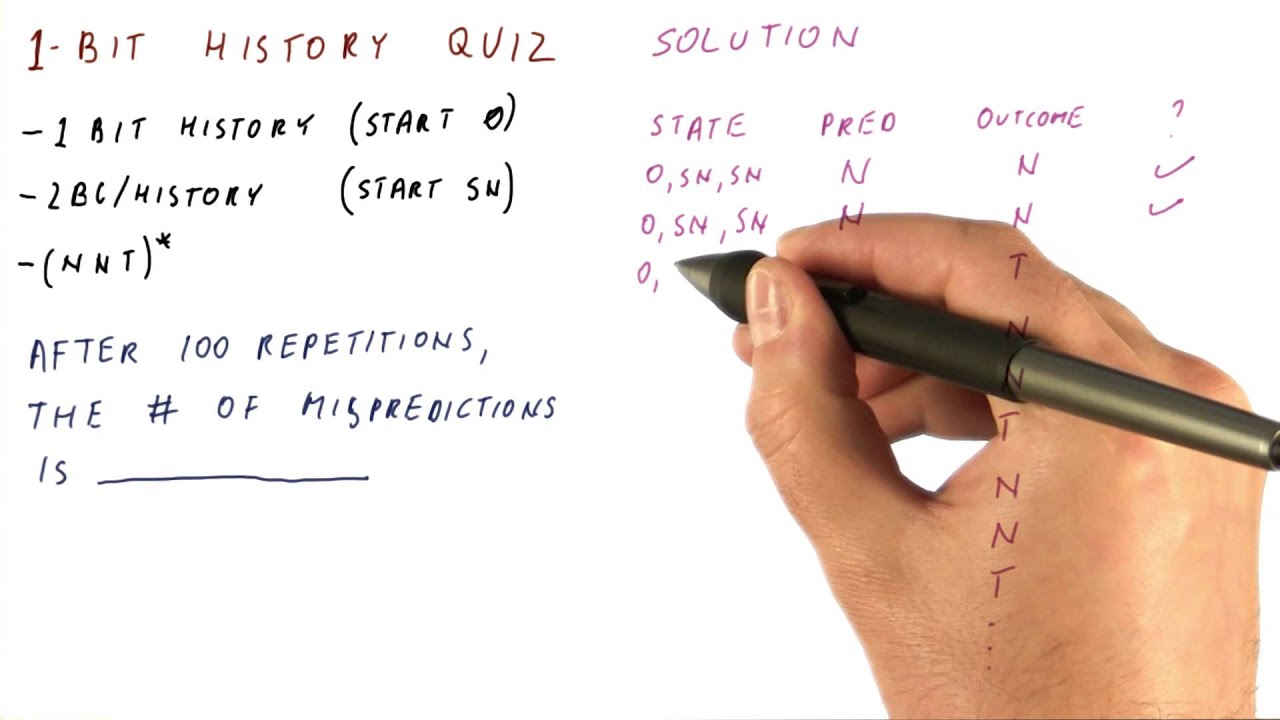 1-BIT HISTORY QUIZ SOLUTION
- 1 BIT HISTORY (START 0)
- 2BC/HISTORY (START SN)
- (NNT)*
AFTER 100 REPETITIONS,
THE # OF MISPREDICTIONS
IS
STATE PRED OUTCOME ?
0, SN, SN N N ✓
0, SN, SN N N ✓
0, T
N
N
T
N
N
T
...